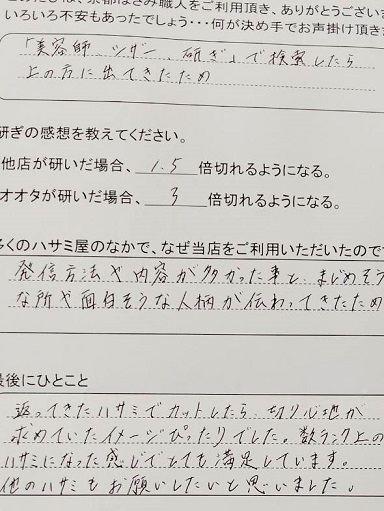 京都はさみ職人をご利用頂き、ありがとうござい
いろいろ不安もあったでしょう・・・何が決め手でお声掛け頂き
「美容師 シザー 研ぎ」で検索したら
上の方に出てきたため
研ぎの感想を教えてください。
他店が研いだ場合、1.5倍切れるようになる。
オオタが研いだ場合、3倍切れるようになる。
多くのハサミ屋のなかで、なぜ当店をご利用いただいたので
発信方法や内容が多かった事と、まじめそう
な所や面白そうな人柄が伝わってきたため
最後にひとこと
返ってきたハサミでカットしたら、切り心地が
求めていたイメージぴったりでした。数ランク上の
ハサミになった感じでとても満足しています。
他のハサミもお願いしたいと思いました。